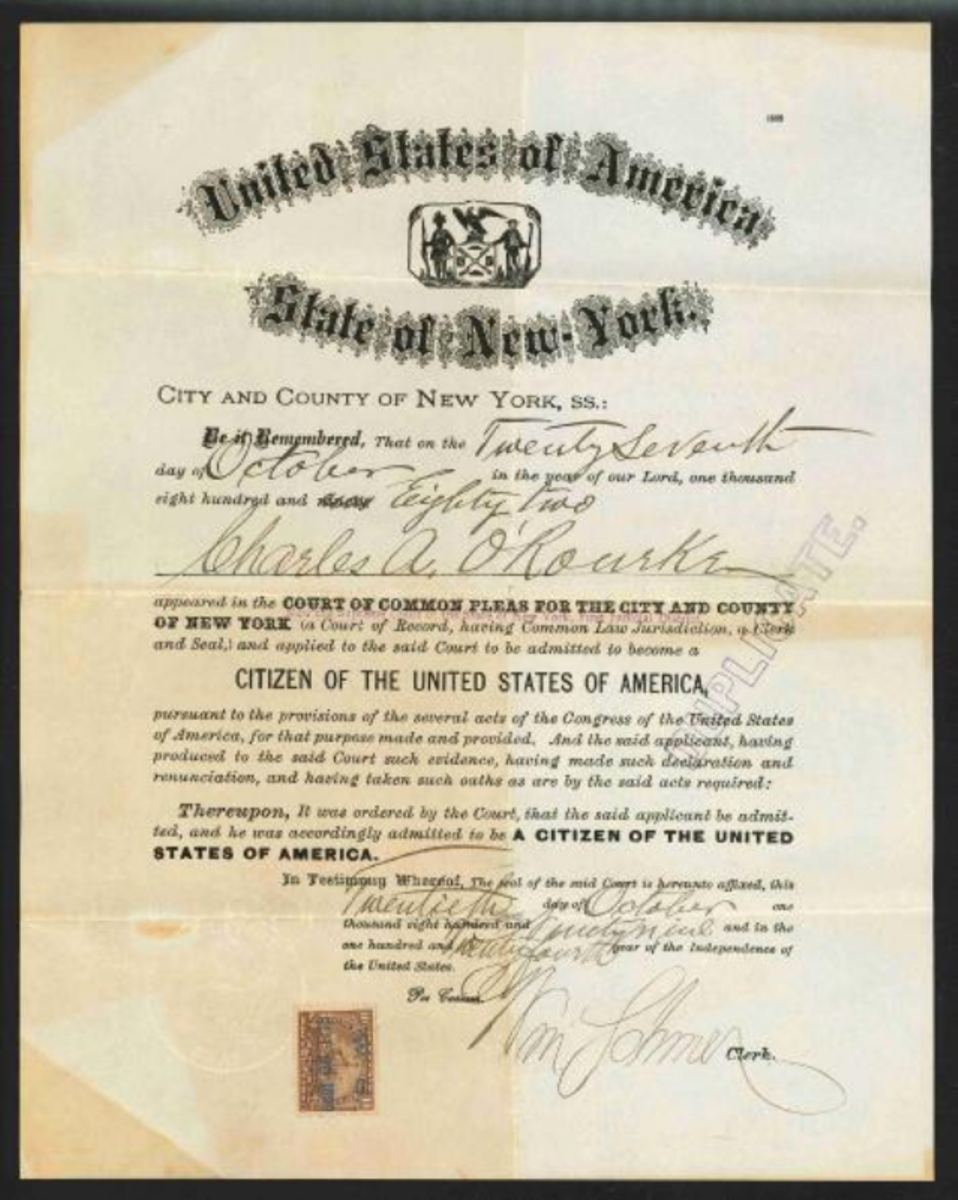 United States of America
State of New-York.
CITY AND COUNTY OF NEW YORK, SS.:
Be it Remembered, That on the Twenty Seventh
day of October in the year of our Lord, one thousand
eight hundred and ninety Eighty two
Charles A. O'Rourke
appeared in the COURT OF COMMON PLEAS FOR THE CITY AND COUNTY
OF NEW YORK (a Court of Record, having Common Law Jurisdiction, a Clerk
and Seal,) and applied to the said Court to be admitted to become a
CITIZEN OF THE UNITED STATES OF AMERICA,
pursuant to the provisions of the several acts of the Congress of the United States
of America, for that purpose made and provided. And the said applicant, having
produced to the said Court such evidence, having made such declaration and
renunciation, and having taken such oaths as are by the said acts required:
Thereupon, It was ordered by the Court, that the said applicant be admit-
ted, and he was accordingly admitted to be A CITIZEN OF THE UNITED
STATES OF AMERICA.
In Testimony Whereof, The seal of the said Court is hereunto affixed, this
Twentieth day of October one
thousand eight hundred and Ninety nine and in the
one hundred and Twenty fourth year of the Independence of
the United States.
Per Curiam.
Wm Sohmer Clerk.
DUPLICATE.